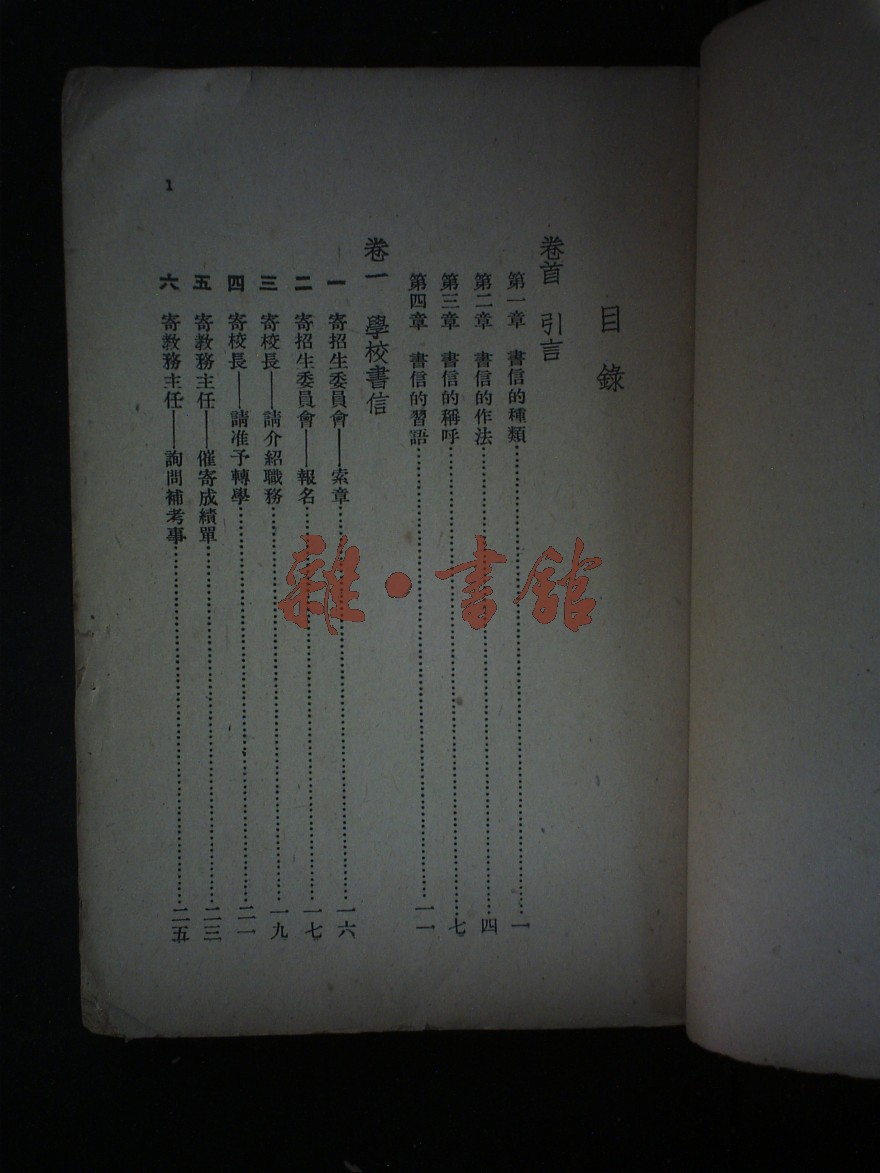 目錄
卷首 引言
第一章 書信的種類……一
第二章 書信的作法……四
第三章 書信的稱呼……七
第四章 書信的習語……一一
卷一 學校書信
一 寄招生委員會——索章……一六
二 寄招生委員會——報名……一七
三 寄校長——請介紹職務……一九
四 寄校長——請准予轉學……二一
五 寄教務主任——催寄成績單……二三
六 寄教務主任——詢問補考事……二五
1
雜·書館